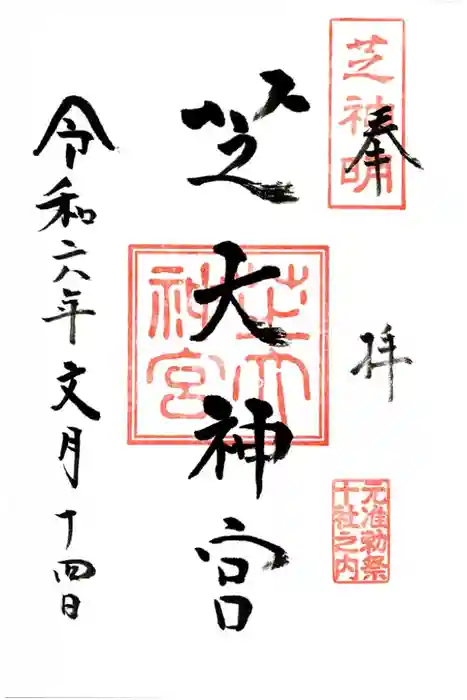 奉拝
芝神明
元准勅祭
十社之内
芝大神宮
芝大
神宮
令和六年文月十四日